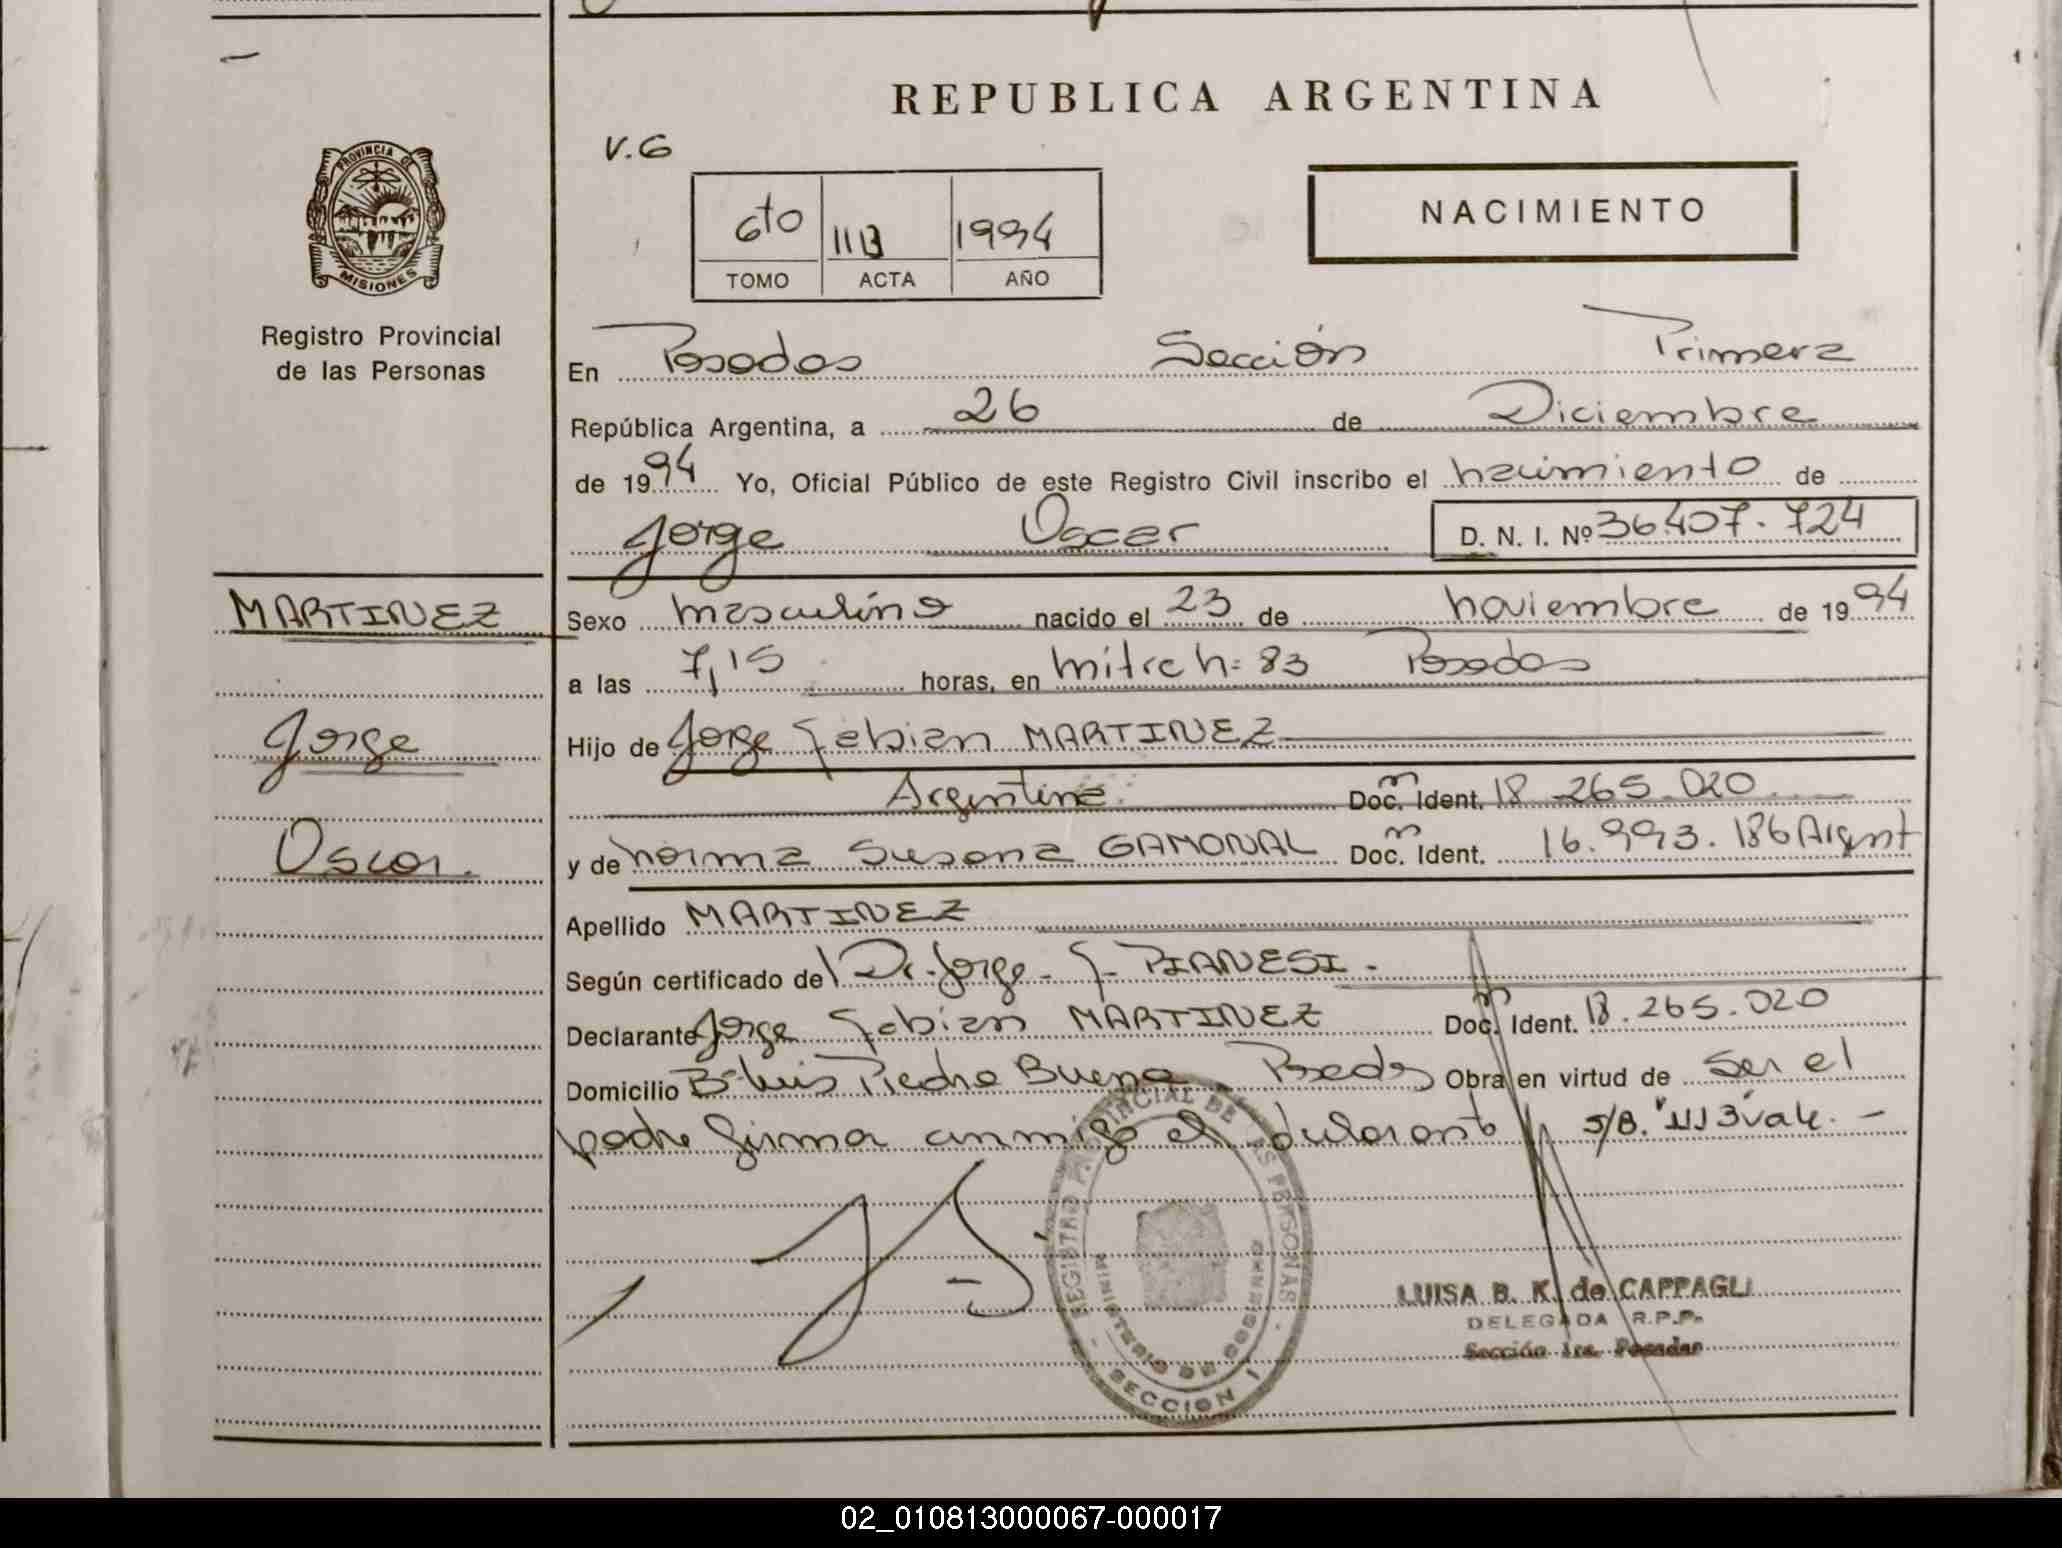 REPUBLICA ARGENTINA
V.G
PROVINCIA DE
MISIONES
6to 1994
TOMO ACTA AÑO
NACIMIENTO
Registro Provincial
de las Personas
En Posadas Sección Primera
República Argentina, a 26 de Diciembre
de 1994 Yo, Oficial Público de este Registro Civil inscribo el nacimiento de
Jorge Oscar D. N. I. Nº 36407.724
MARTINEZ
Jorge
Oscar.
Sexo masculino nacido el 23 de noviembre de 1994
a las 7,15 horas, en mitre n: 83 Posadas
Hijo de Jorge Fabian MARTINEZ
Argentina Doc. Ident. 18 265.020
y de norma Susana GAMONAL Doc. Ident. 16.993.186 Argent
Apellido MARTINEZ
Según certificado del Dr. Jorge F. PIANESI.
Declarante Jorge Fabian MARTINEZ Doc. Ident. 18.265.020
Domicilio Bº Luis Piedra Buena Posadas Obra en virtud de ser el
padre firma conmigo el declarante S/B. vale. -
REGISTRO PROVINCIAL DE LAS PERSONAS
MINISTERIO DE GOBIERNO
SECCION 1
LUISA B. K. de CAPPAGLI
DELEGADA R.P.P.
Sección 1ra. Posadas
02_010813000067-000017